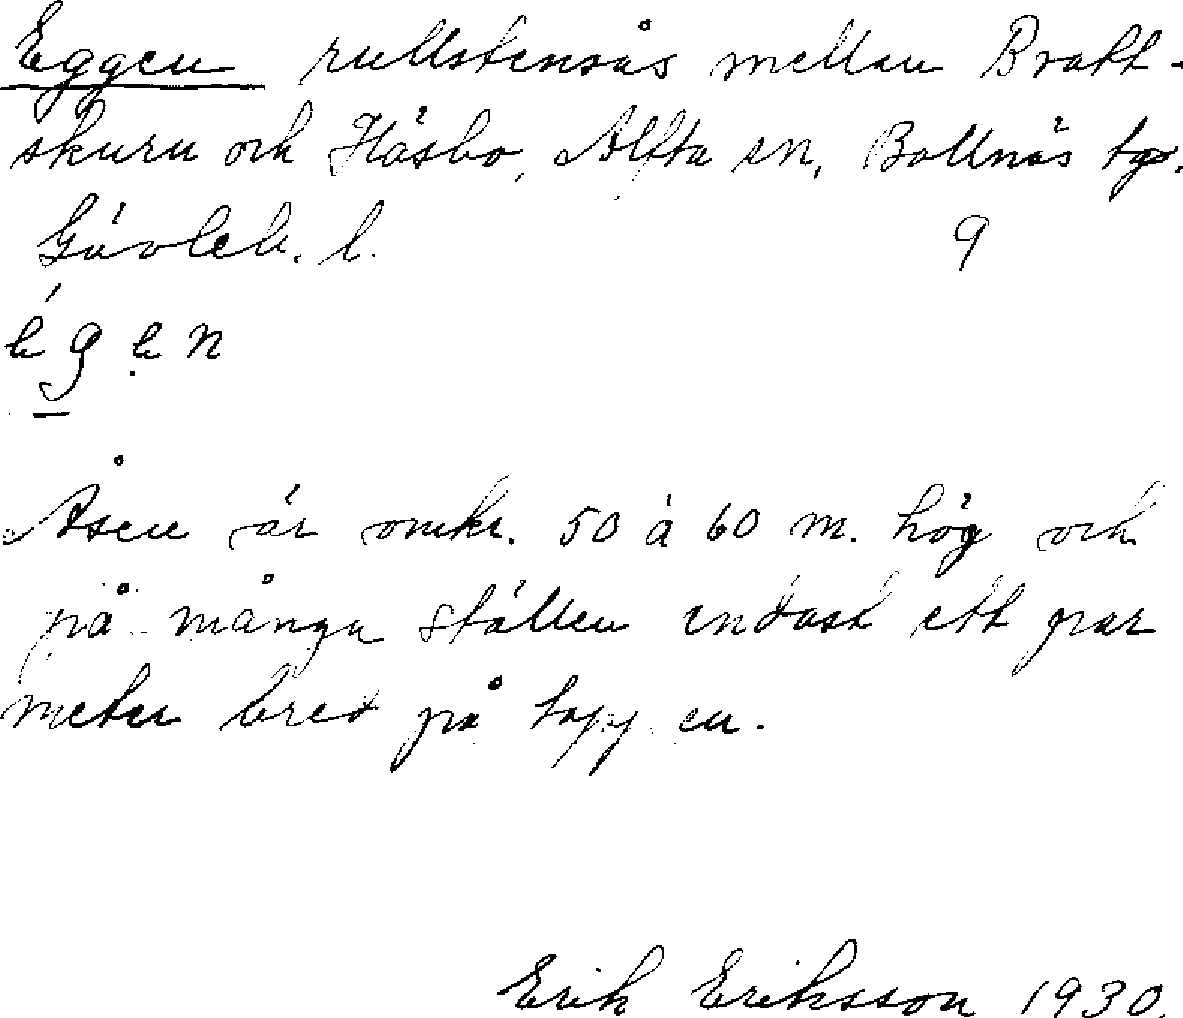 Eggen rullstensås mellan Bratt-
skuru och Häsbo, Alfta sn, Bollnäs tgs.
Gävleb. l. 9
égen
Åsen är omkr. 50 à 60 m. hög och
på många ställen endast ett par
meter bred på toppen.
Erik Eriksson 1930.